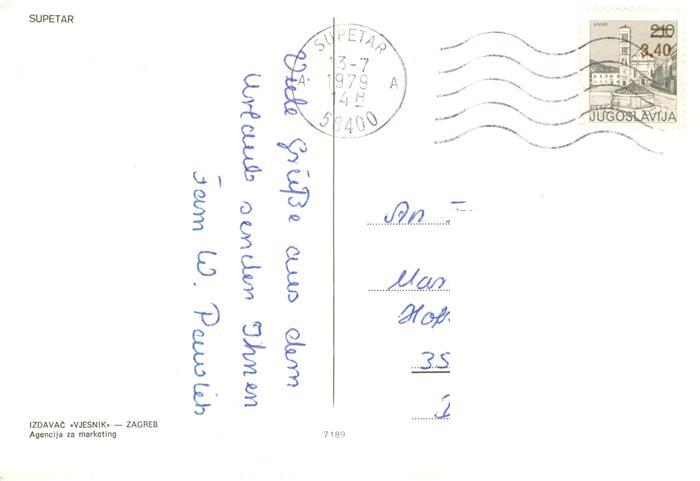 SUPETAR
SUPETAR
13-7
1979
14 H
A
A
58400
HVAR
2,10
3.40
JUGOSLAVIJA
Viele Grüße aus dem
Urlaub senden Ihnen
Fam W.
An
35
IZDAVAČ «VJESNIK» — ZAGREB
Agencija za marketing
7189